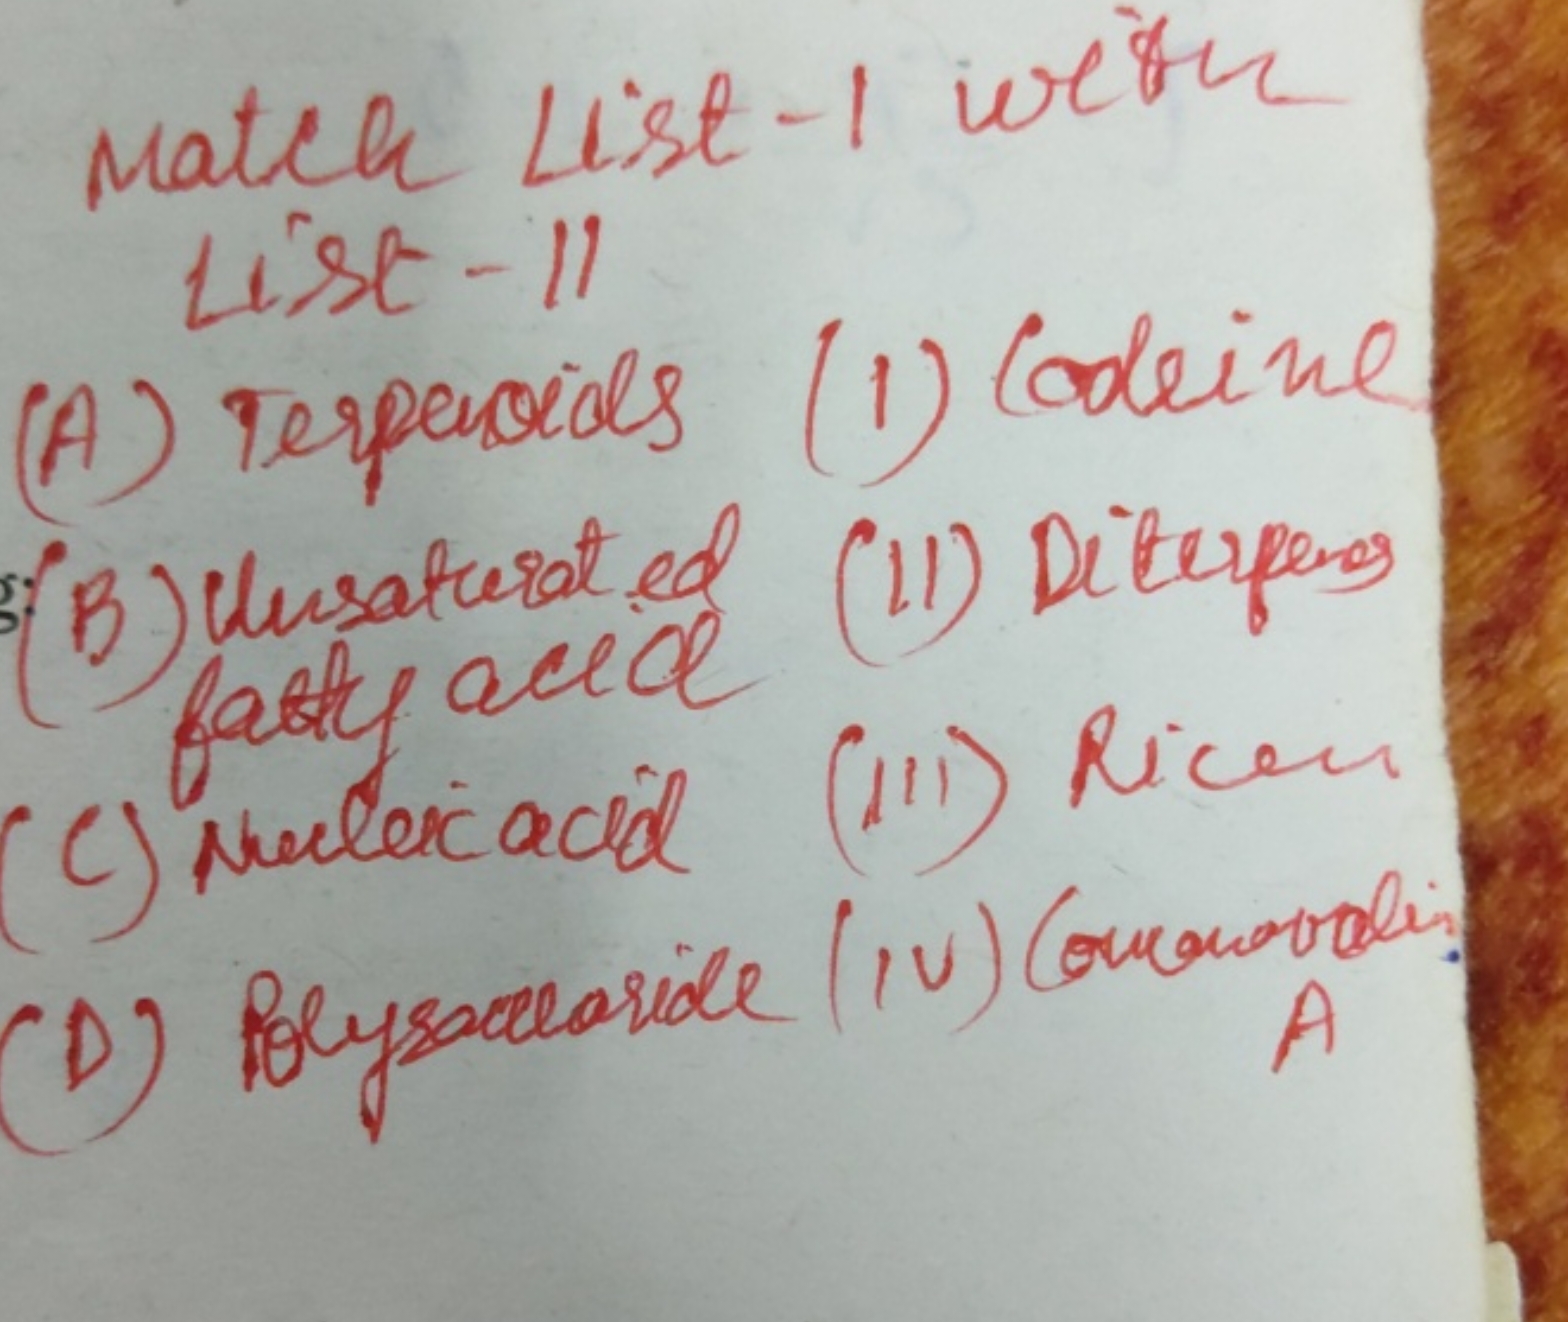 Match List-I with
List-II
(A) Terpenoids (I) Codeine
g: (B) Unsaturated (II) Diterpenes
fatty acid
(C) Nucleic acid (III) Ricin
(D) Polysaccharide (IV)
A